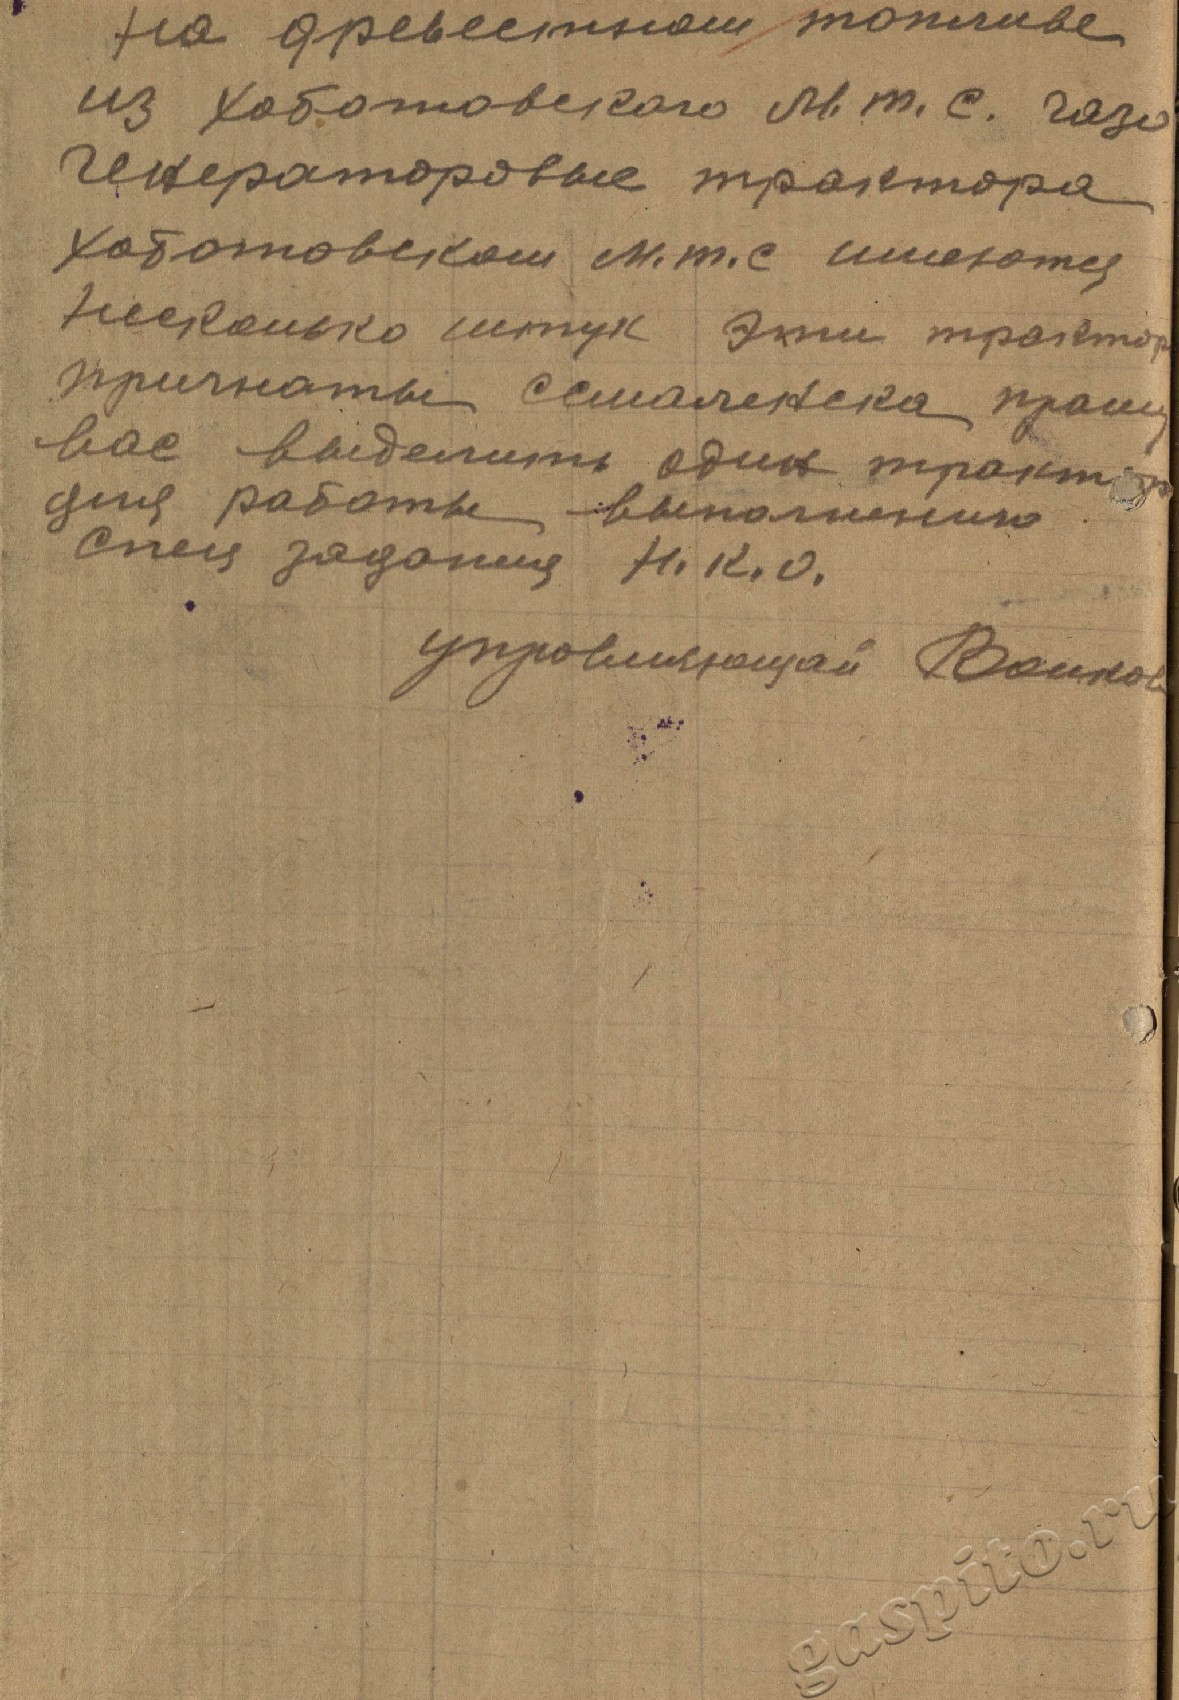 на древестном топливе
из Хоботовского М.т.с. газо
генераторовые трактора
Хоботовском М.т.с имеютця
несколько штук Эти трактор
пригнаты семаленска прашу
вас выделить один трактор
для работы выполнению
спец задания Н.К.О.
управляющай Волков
gaspito.ru